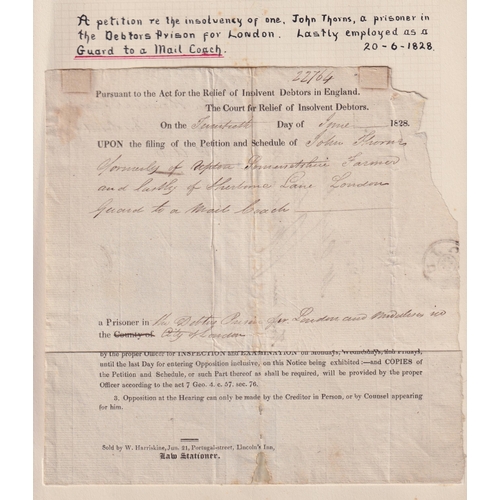 A petition re the insolvency of one, John Thorns, a prisoner in
the Debtors Prison for London. Lastly employed as a
Guard to a Mail Coach. 20-6-1828.
22704
Pursuant to the Act for the Relief of Insolvent Debtors in England.
The Court for Relief of Insolvent Debtors.
On the Twentieth Day of June 1828.
UPON the filing of the Petition and Schedule of John Thorns
formerly of Somersetshire Farmer
and lastly of Sherborne Lane London
Guard to a Mail Coach
a Prisoner in the Debtors Prison for London and Middlesex in
the County of City of London
by the proper Officer for INSPECTION and EXAMINATION on Mondays, Wednesdays, and Fridays,
until the last Day for entering Opposition inclusive, on this Notice being exhibited:—and COPIES of
the Petition and Schedule, or such Part thereof as shall be required, will be provided by the proper
Officer according to the act 7 Geo. 4. c. 57. sec. 76.
3. Opposition at the Hearing can only be made by the Creditor in Person, or by Counsel appearing
for him.
Sold by W. Harriskine, Jun. 21, Portugal-street, Lincoln's Inn,
Law Stationer.